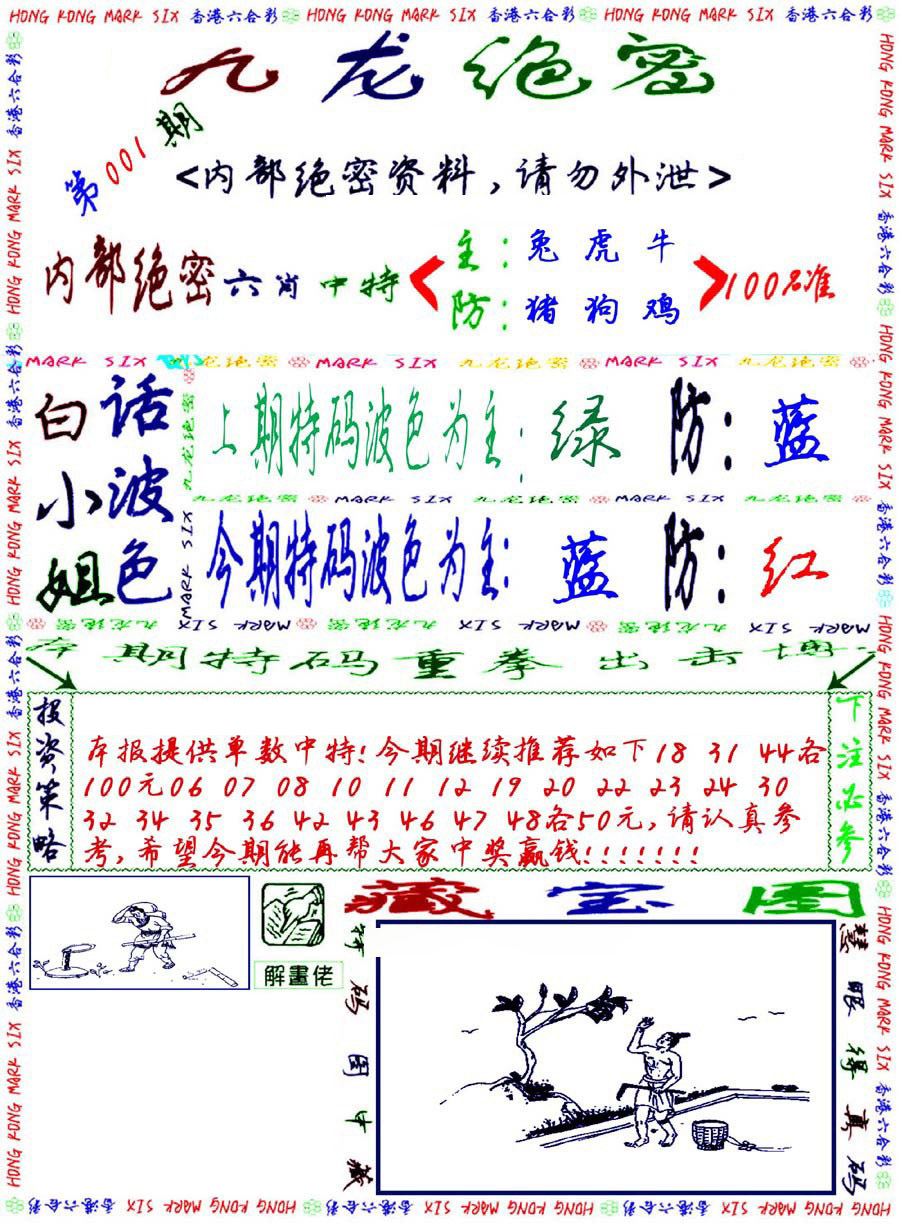 HONG KONG MARK SIX 香港六合彩 HONG KONG MARK SIX 香港六合彩 HONG KONG MARK SIX 香港六合彩
九龙绝密
第001期
<内部绝密资料,请勿外泄>
内部绝密六肖中特
主:兔虎牛
防:猪狗鸡
100%准
MARK SIX 九龙绝密 MARK SIX 九龙绝密 MARK SIX 九龙绝密
白话
小波
姐色
上期特码波色为主:绿 防:蓝
九龙绝密 MARK SIX 九龙绝密 MARK SIX 九龙绝密
今期特码波色为主:蓝 防:红
MARK SIX 九龙绝密 MARK SIX 九龙绝密 MARK SIX 九龙绝密
本期特码重拳出击
投资策略
本报提供单数中特!今期继续推荐如下18 31 44各
100元06 07 08 10 11 12 19 20 22 23 24 30
32 34 35 36 42 43 46 47 48各50元,请认真参
考,希望今期能再帮大家中奖赢钱!!!!!!!
下注必参
藏宝图
解畫佬
特码图中藏
慧眼得真码
HONG KONG MARK SIX 香港六合彩 HONG KONG MARK SIX 香港六合彩 HONG KONG MARK SIX 香港六合彩